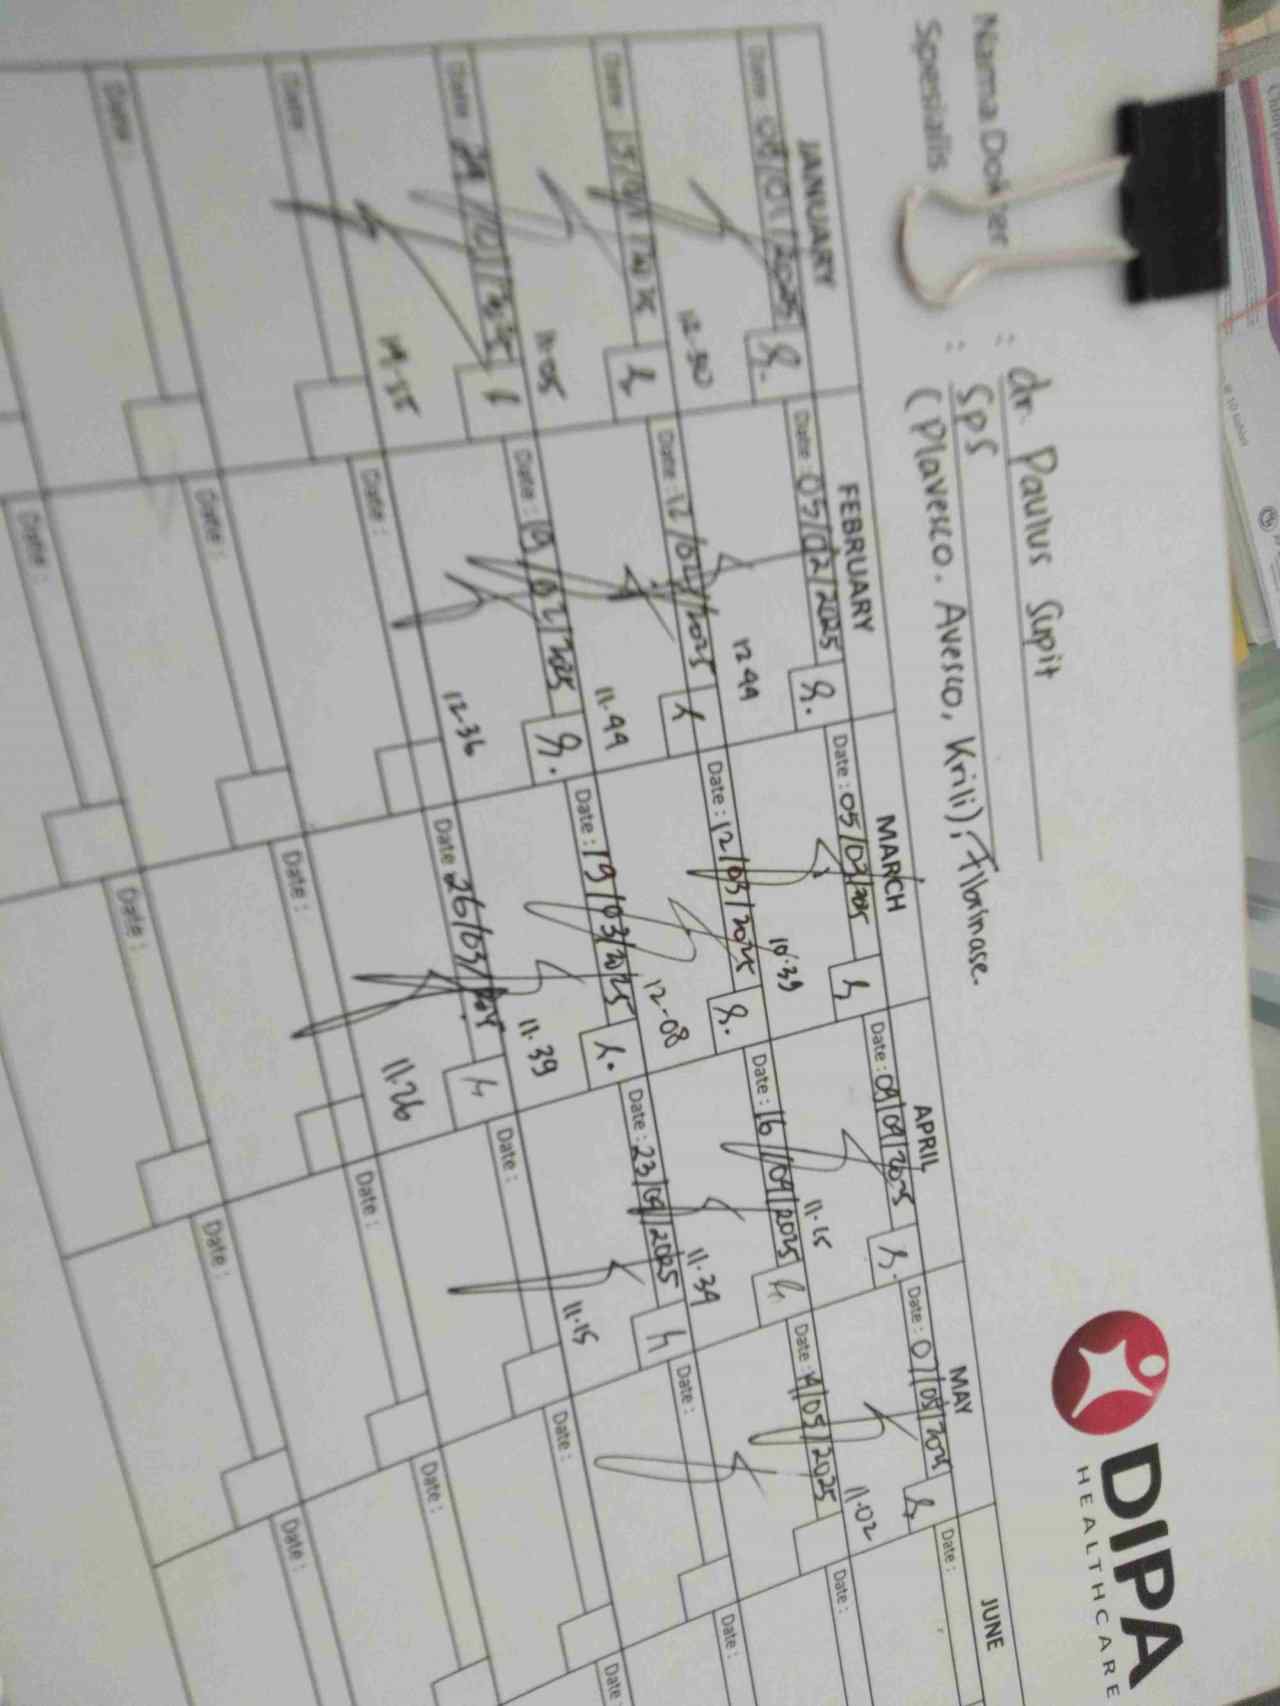 DIPA
HEALTHCARE
Nama Dokter : dr. Paulus Supit
Spesialis : SpS
(Plavesco. Avesco, Krili), Fibrinase.
JANUARY FEBRUARY MARCH APRIL MAY JUNE
Date : 08/01/2025 Date : 05/02/2025 Date : 05/03/2025 Date : 09/04/2025 Date : 07/05/2025 Date :
12.50 12.44 10.39 11.15 11.02
Date : 15/01/2025 Date : 12/02/2025 Date : 12/03/2025 Date : 16/04/2025 Date : 14/05/2025 Date :
11.05 11.44 12.08 11.34
Date : 19/02/2025 Date : 19/03/2025 Date : 23/04/2025 Date : Date :
12.36 11.39 11.15
Date : Date : Date : 26/03/ Date : Date : Date :
11.26
Date : Date : Date : Date : Date :
Date : Date : Date : Date :